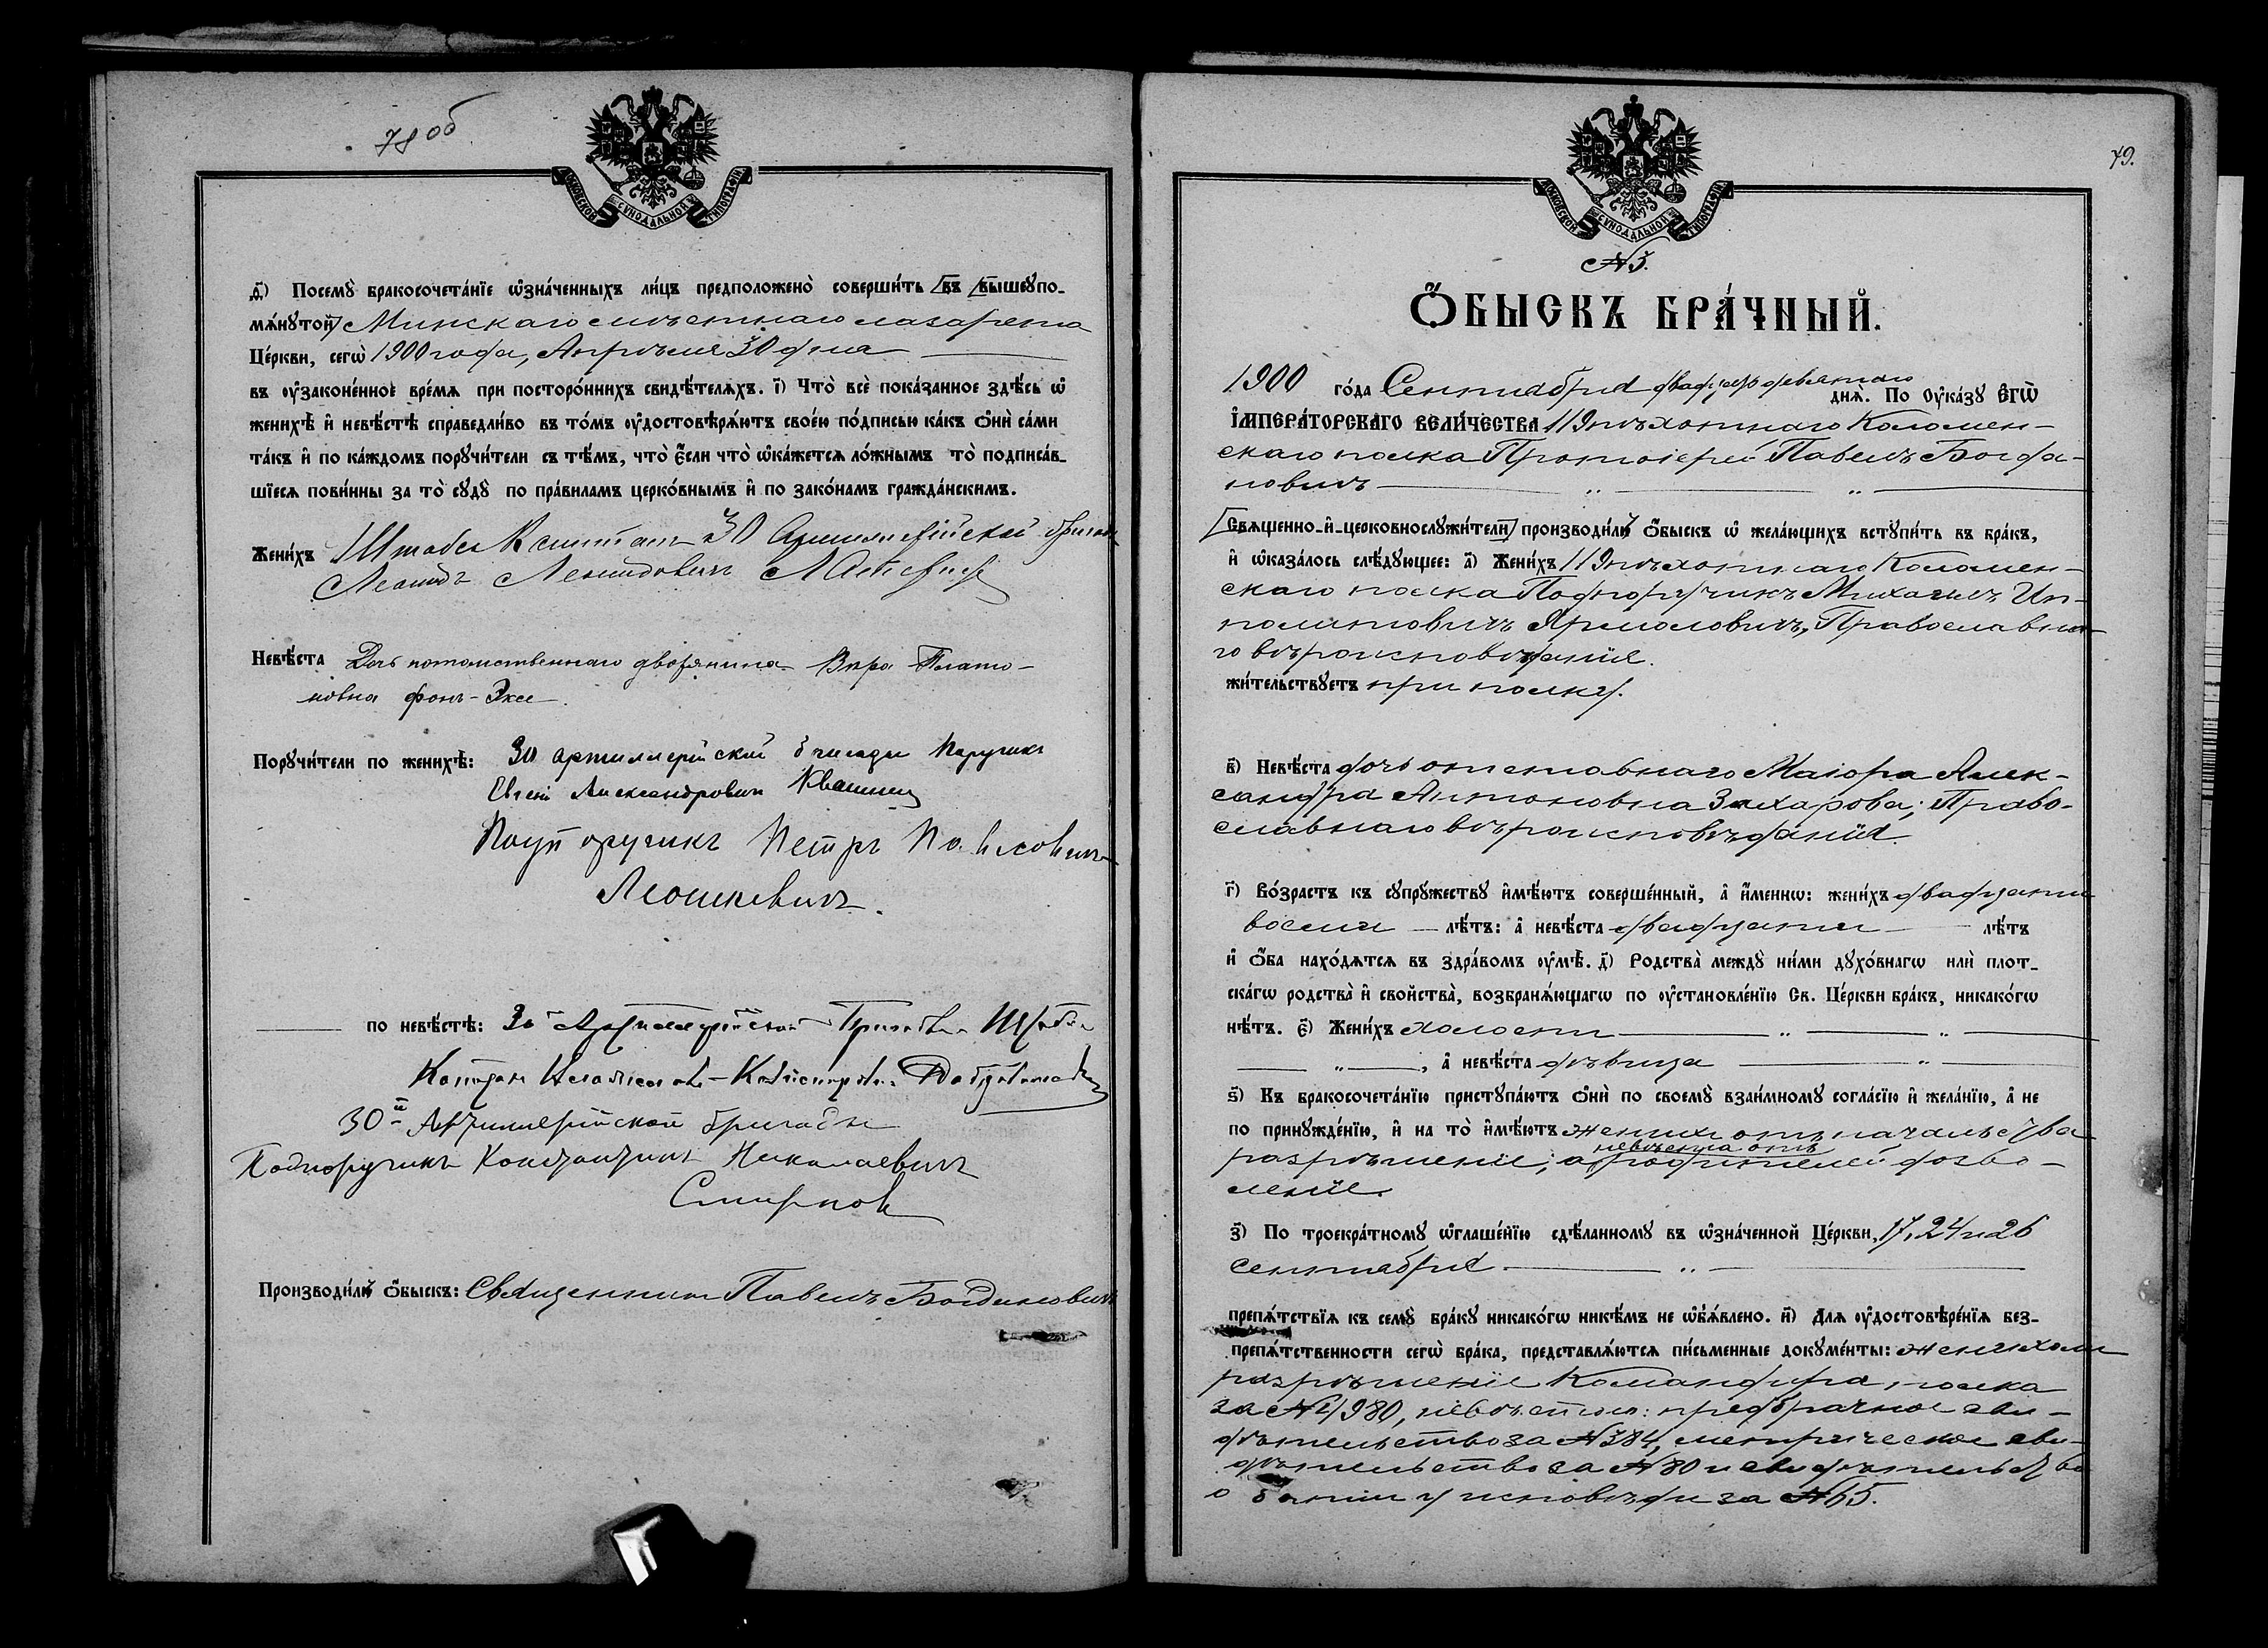 78 об
МОСКОВСКОЙ СѴНОДАЛЬНОЙ ТИПОГРАФІИ
Посемꙋ̀ бракосочета́нїе ѡ҆зна́ченныхъ ли́цъ предположено̀ соверши́ть въ вышеꙋпо-
мѧ́нꙋтой Минскаго мѣстнаго лазарета
Це́ркви, сегѡ̀ 1900 года, Апрѣля 30 дня
въ ᲂу҆законе́нное вре́мѧ при посторо́ннихъ свидѣ́телѧхъ. і҃) Что̀ всѐ пока́занное здѣ́сь ѡ҆
женихѣ̀ и҆ невѣ́стѣ справедли́во въ то́мъ ᲂу҆достовѣрѧ́ютъ свое́ю по́дписью ка́къ ѻ҆нѝ са́ми
та́къ и҆ по ка́ждомъ порꙋчи́тели съ тѣ́мъ, что̀ є҆́сли что̀ ѡ҆ка́жетсѧ ло́жнымъ то̀ подписа́в-
шїесѧ пови́нны за то̀ сꙋдꙋ̀ по пра́виламъ церко́внымъ и҆ по зако́намъ гражда́нскимъ.
Жени́хъ Штабсъ Капитанъ 30 Артиллерійской бригады
Леонидъ Леонидовичъ
Невѣ́ста Дочь потомственнаго дворянина Вѣра Плато-
новна фонъ-Эксе
Порꙋчи́тели по женихѣ̀: 30 артиллерійской бригады Поручикъ
Евгеній Александровичъ Квашнинъ
Подпоручикъ Петръ Павловичъ
Леошкевичъ.
по невѣ́стѣ: 30й Артиллерійской Бригады Штабсъ
Капитанъ
30й Артиллерійской бригады
Подпоручикъ Константинъ Николаевичъ
Смирновъ
Производи́лъ ѻ҆́быскъ: Священникъ Павелъ Богдановичъ
79.
МОСКОВСКОЙ СѴНОДАЛЬНОЙ ТИПОГРАФІИ
№ 3.
Ѻ҆́БЫСКЪ БРА́ЧНЫЙ.
1900 го́да Сентября двадцать девятаго днѧ̀. По ᲂу҆ка́зꙋ Є҆гѡ̀
І҆МПЕРА́ТОРСКАГО ВЕЛИ́ЧЕСТВА 119 пѣхотнаго Коломен-
скаго полка Протоіерей Павелъ Богда-
новичъ
Свѧщенно-и҆-церковнослꙋжи́тели производи́лъ ѻ҆́быскъ ѡ҆ жела́ющихъ встꙋпи́ть въ бра́къ,
и҆ ѡ҆каза́лось слѣ́дꙋющее: а҃) Жени́хъ 119 пѣхотнаго Коломен-
скаго полка Подпоручикъ Михаилъ Ип-
политовичъ Ярмоловичъ, Православна-
го вѣроисповѣданія.
жи́тельствꙋетъ при полку.
в҃) Невѣ́ста дочь отставнаго Маіора Алек-
сандра Антоновна Захарова; Право-
славнаго вѣроисповѣданія.
г҃) Во́зрастъ къ сꙋпрꙋ́жествꙋ и҆мѣ́ютъ соверше́нный, а҆ и҆́меннѡ: жени́хъ двадцати
восьми лѣ́тъ: а҆ невѣ́ста двадцати лѣ́тъ
и҆ ѻ҆́ба нахо́дѧтсѧ въ здра́вомъ ᲂу҆мѣ̀. д҃) Родства̀ междꙋ̀ ни́ми дꙋхо́внагѡ и҆лѝ плот-
ска́гѡ родства̀ и҆ свойства̀, возбранѧ́ющагѡ по ᲂу҆становле́нїю Св. Це́ркви бра́къ, никако́гѡ
нѣ́тъ. є҃) Жени́хъ холостъ
, а҆ невѣ́ста дѣвица
ѕ҃) Къ бракосочета́нїю пристꙋпа́ютъ ѻ҆нѝ по своемꙋ̀ взаи́мномꙋ согла́сїю и҆ жела́нїю, а҆ не
по принꙋжде́нїю, и҆ на то̀ и҆мѣ́ютъ женихъ отъ начальства
невѣста отъ
разрѣшеніе; а родителей дозво-
леніе.
з҃) По троекра́тномꙋ ѡ҆глаше́нїю сдѣ́ланномꙋ въ ѡ҆зна́ченной Це́ркви, 17, 24 и 26
сентября
препѧ́тствїѧ къ семꙋ̀ бра́кꙋ никако́гѡ никѣ́мъ не ѡ҆бъѧ́влено. и҃) Длѧ ᲂу҆достовѣре́нїѧ без-
препѧ́тственности сегѡ̀ бра́ка, представлѧ́ютсѧ пи́сьменные докꙋме́нты: женихомъ
разрѣшеніе Командира полка
за № 1980, невѣстою: предбрачное сви-
дѣтельство за № 384, метрическое сви-
дѣтельство за № 80 и свидѣтельство
о бытіи у исповѣди за № 65.